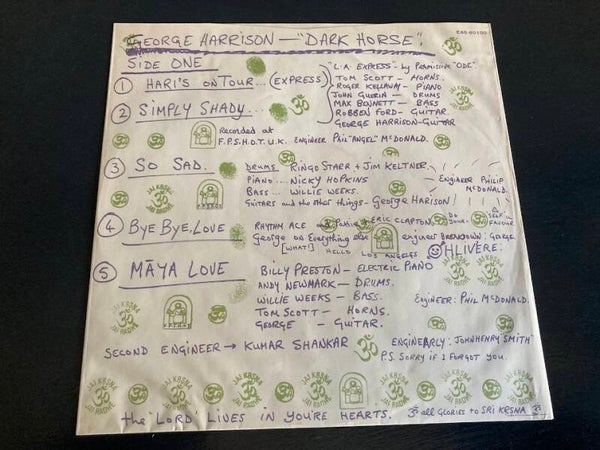 EAS-80100
GEORGE HARRISON — "DARK HORSE".
SIDE ONE
① HARI'S ON TOUR... (EXPRESS)
"L.A. EXPRESS" - by Permission "ODE"
TOM SCOTT — HORNS.
ROGER KELLAWAY — PIANO
JOHN GUERIN — DRUMS
MAX BENNETT — BASS
ROBBEN FORD — GUITAR.
GEORGE HARRISON — GUITAR
② SIMPLY SHADY...
Recorded at
F.P.S.H.O.T. U.K. ENGINEER PHIL "ANGEL" McDONALD.
③ SO SAD.
DRUMS — RINGO STARR + JIM KELTNER
PIANO.... NICKY HOPKINS
BASS... WILLIE WEEKS.
GUITARS and the other things - GEORGE HARISON!
ENGINEER PHILIP McDONALD.
④ BYE BYE, LOVE
RHYTHM ACE ERIC CLAPTON
DO YOUR SELF FAVOUR
George on Everything else engineer BREAKDOWN: GEORGE.
[WHAT!] HELLO LOS ANGELES OHLIVERE:
⑤ MĀYA LOVE
BILLY PRESTON — ELECTRIC PIANO
ANDY NEWMARK — DRUMS.
WILLIE WEEKS — BASS.
TOM SCOTT — HORNS.
GEORGE — GUITAR.
ENGINEER: PHIL McDONALD.
SECOND ENGINEER → KUMAR SHANKAR
ENGINEARLY: JOHNHENRY'SMITH"
P.S. SORRY IF I FORGOT YOU.
JAI KRSNA ॐ JAI RADHE
F.P.S.H.O.T.
the 'LORD' LIVES IN YOU'RE HEARTS. ॐ all GLORIES to SRI KRSNA ॐ